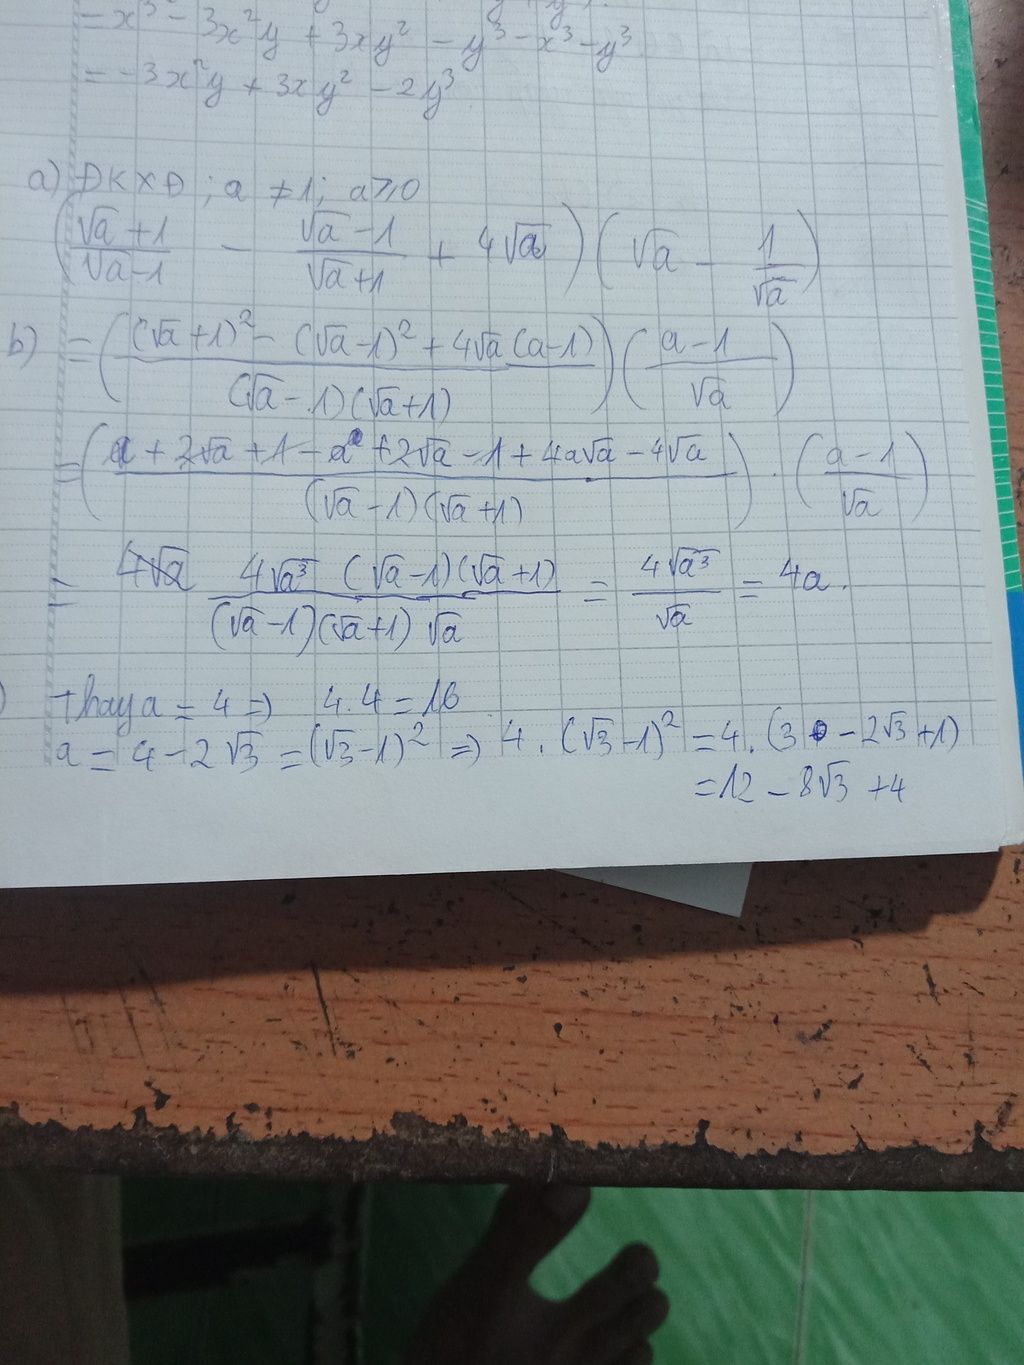 = x³ - 3x²y + 3xy² - y³ - x³ - y³
= -3x²y + 3xy² - 2y³
a) ĐKXĐ ; a ≠ 1; a ⩾ 0
((√a + 1)/(√a - 1) - (√a - 1)/(√a + 1) + 4√a)(√a - 1/√a)
b) = (((√a + 1)² - (√a - 1)² + 4√a(a - 1))/((√a - 1)(√a + 1)))((a - 1)/√a)
= ((a + 2√a + 1 - a + 2√a - 1 + 4a√a - 4√a)/((√a - 1)(√a + 1))) . ((a - 1)/√a)
= 4√a (4√a³ (√a - 1)(√a + 1))/((√a - 1)(√a + 1)√a) = 4√a³/√a = 4a.
) thay a = 4 => 4.4 = 16
a = 4 - 2√3 = (√3 - 1)² => 4 . (√3 - 1)² = 4 . (3 - 2√3 + 1)
= 12 - 8√3 + 4